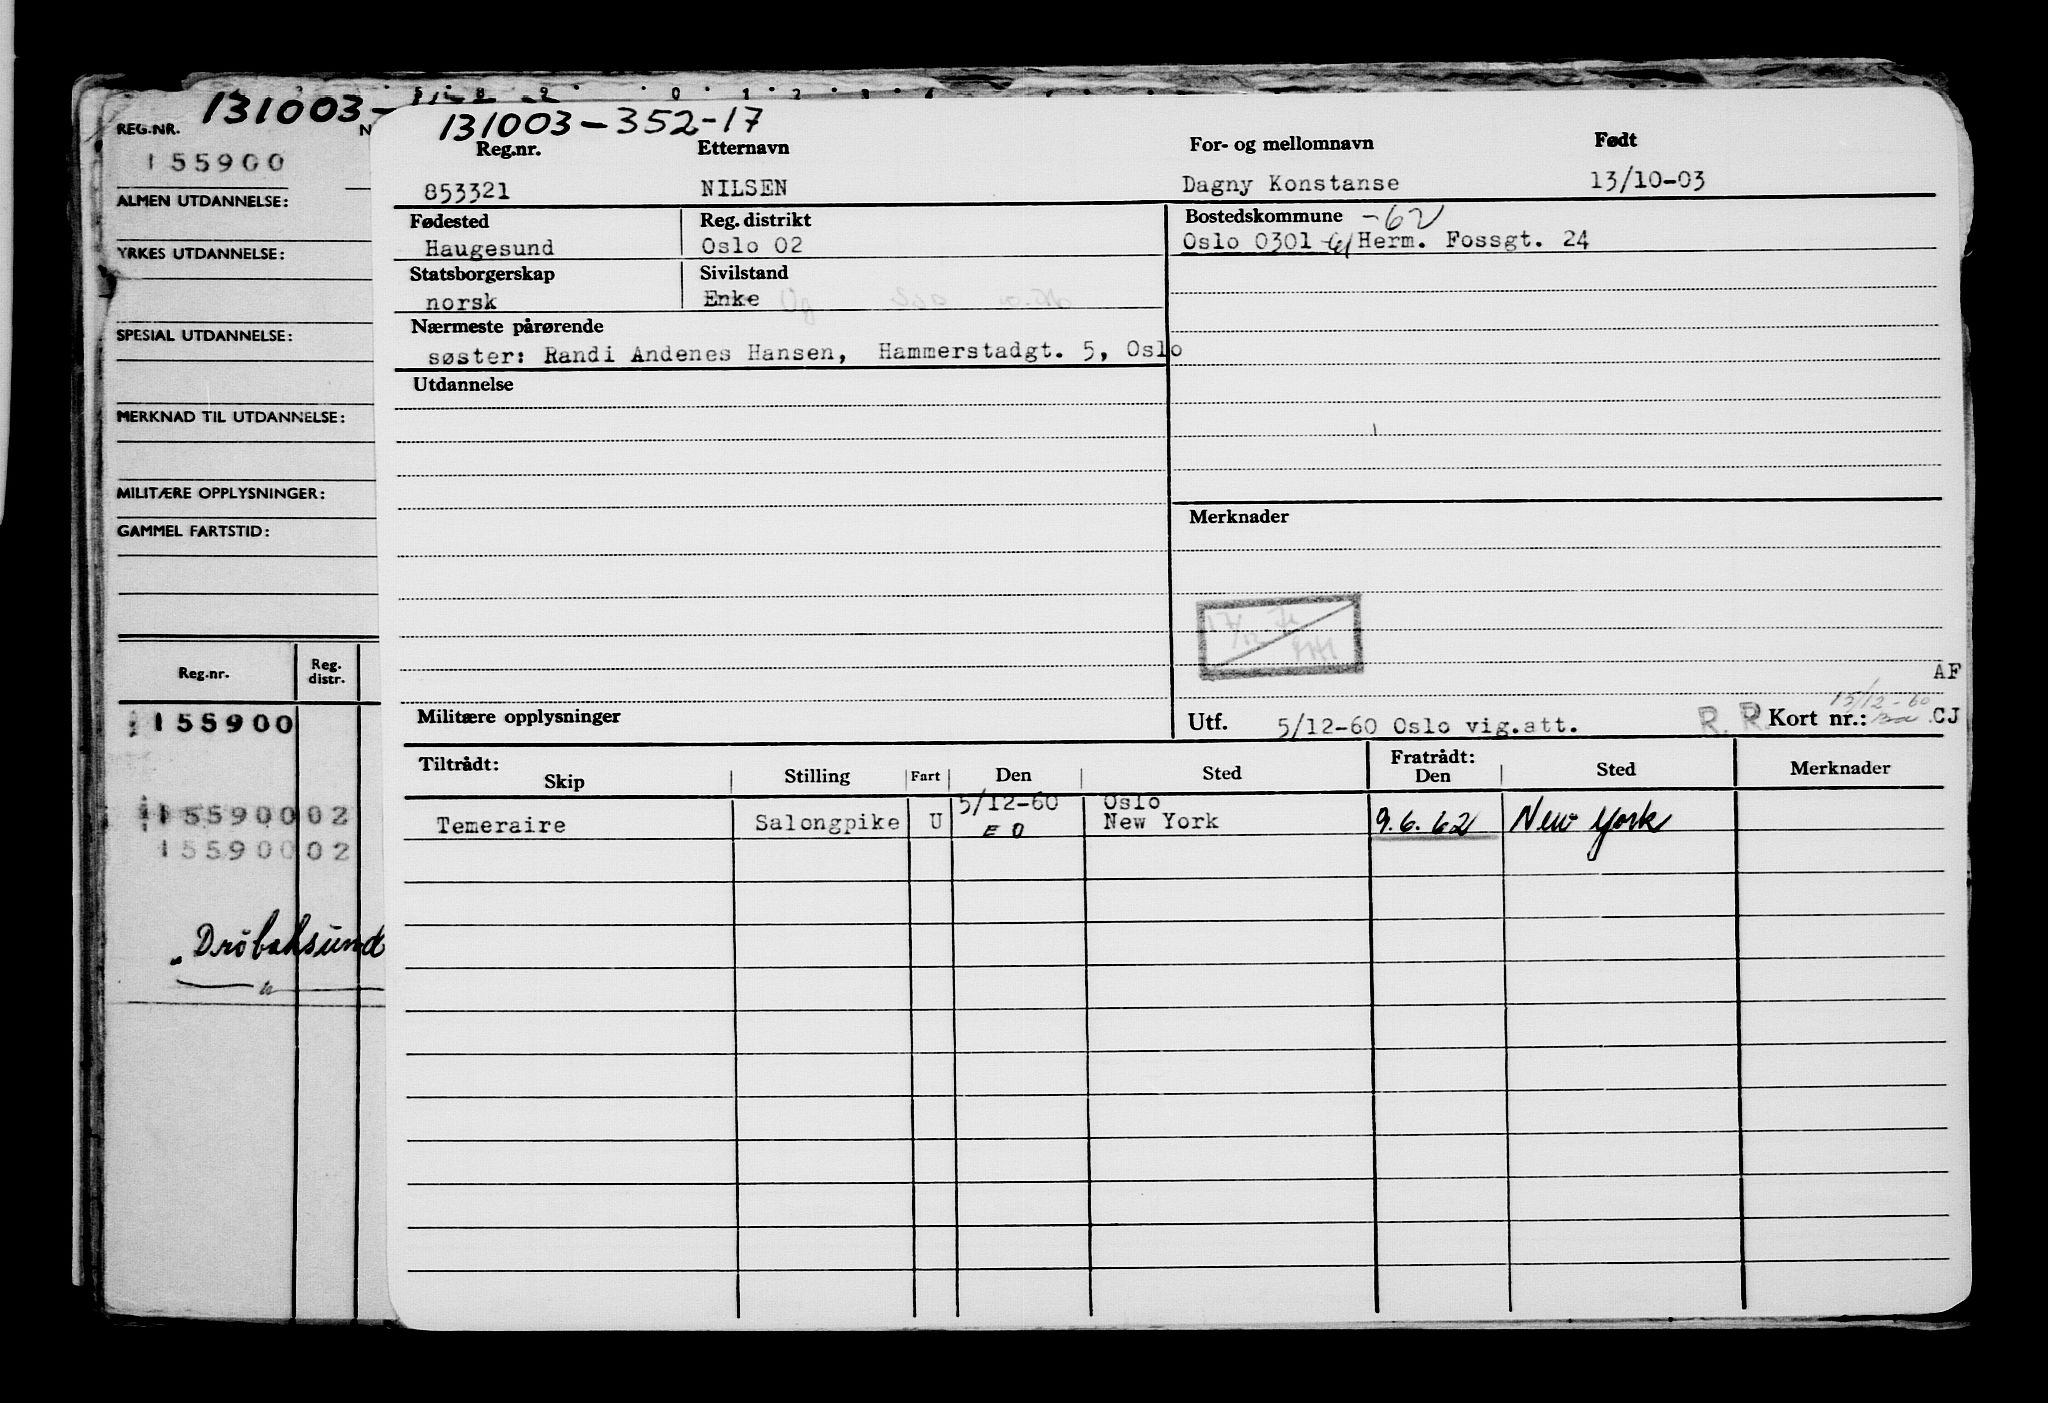 131003-
REG.NR.
155900
ALMEN UTDANNELSE:
YRKES UTDANNELSE:
SPESIAL UTDANNELSE:
MERKNAD TIL UTDANNELSE:
MILITÆRE OPPLYSNINGER:
GAMMEL FARTSTID:
Reg.nr. Reg. distr.
155900
155900 02
155900 02
Drøbaksund
131003-352-17
Reg.nr. Etternavn For- og mellomnavn Født
853321 NILSEN Dagny Konstanse 13/10-03
Fødested Reg. distrikt Bostedskommune -62
Haugesund Oslo 02 Oslo 0301 -61 Herm. Fossgt. 24
Statsborgerskap Sivilstand
norsk Enke Ug
Nærmeste pårørende
søster: Randi Andenes Hansen, Hammerstadgt. 5, Oslo
Utdannelse
Merknader
17/12
AF
13/12-60
Militære opplysninger Utf. 5/12-60 Oslo vig.att. R. R. Kort nr.: CJ
Tiltrådt: Fratrådt:
Skip Stilling Fart Den Sted Den Sted Merknader
5/12-60 Oslo
Temeraire Salongpike U E O New York 9.6.62 New York